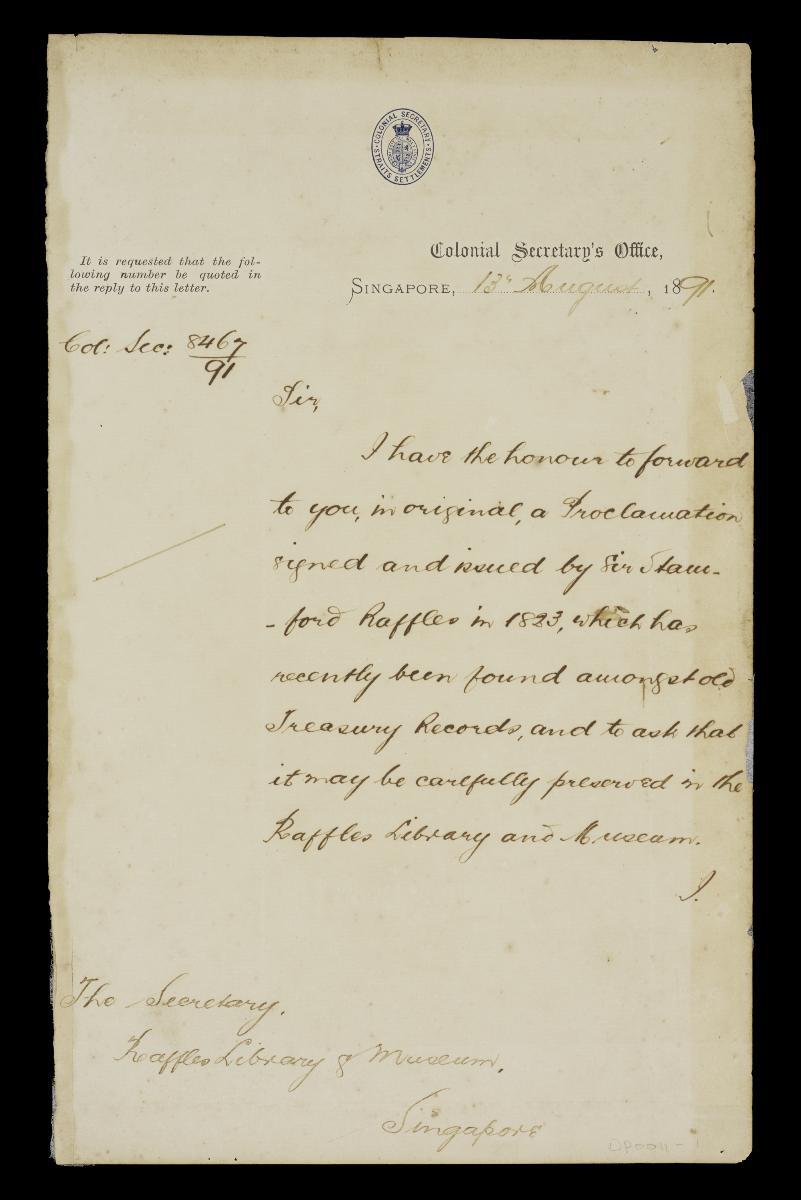 COLONIAL SECRETARY
STRAITS SETTLEMENTS
Colonial Secretary's Office,
SINGAPORE, 13th August, 1891.
It is requested that the fol-
lowing number be quoted in
the reply to this letter.
Col: Sec: 8467
91
Sir,
I have the honour to forward
to you, in original, a Proclamation
signed and issued by Sir Stam-
- ford Raffles in 1823, which has
recently been found amongst old
Treasury Records, and to ask that
it may be carefully preserved in the
Raffles Library and Museum.
I.
The Secretary,
Raffles Library & Museum,
Singapore